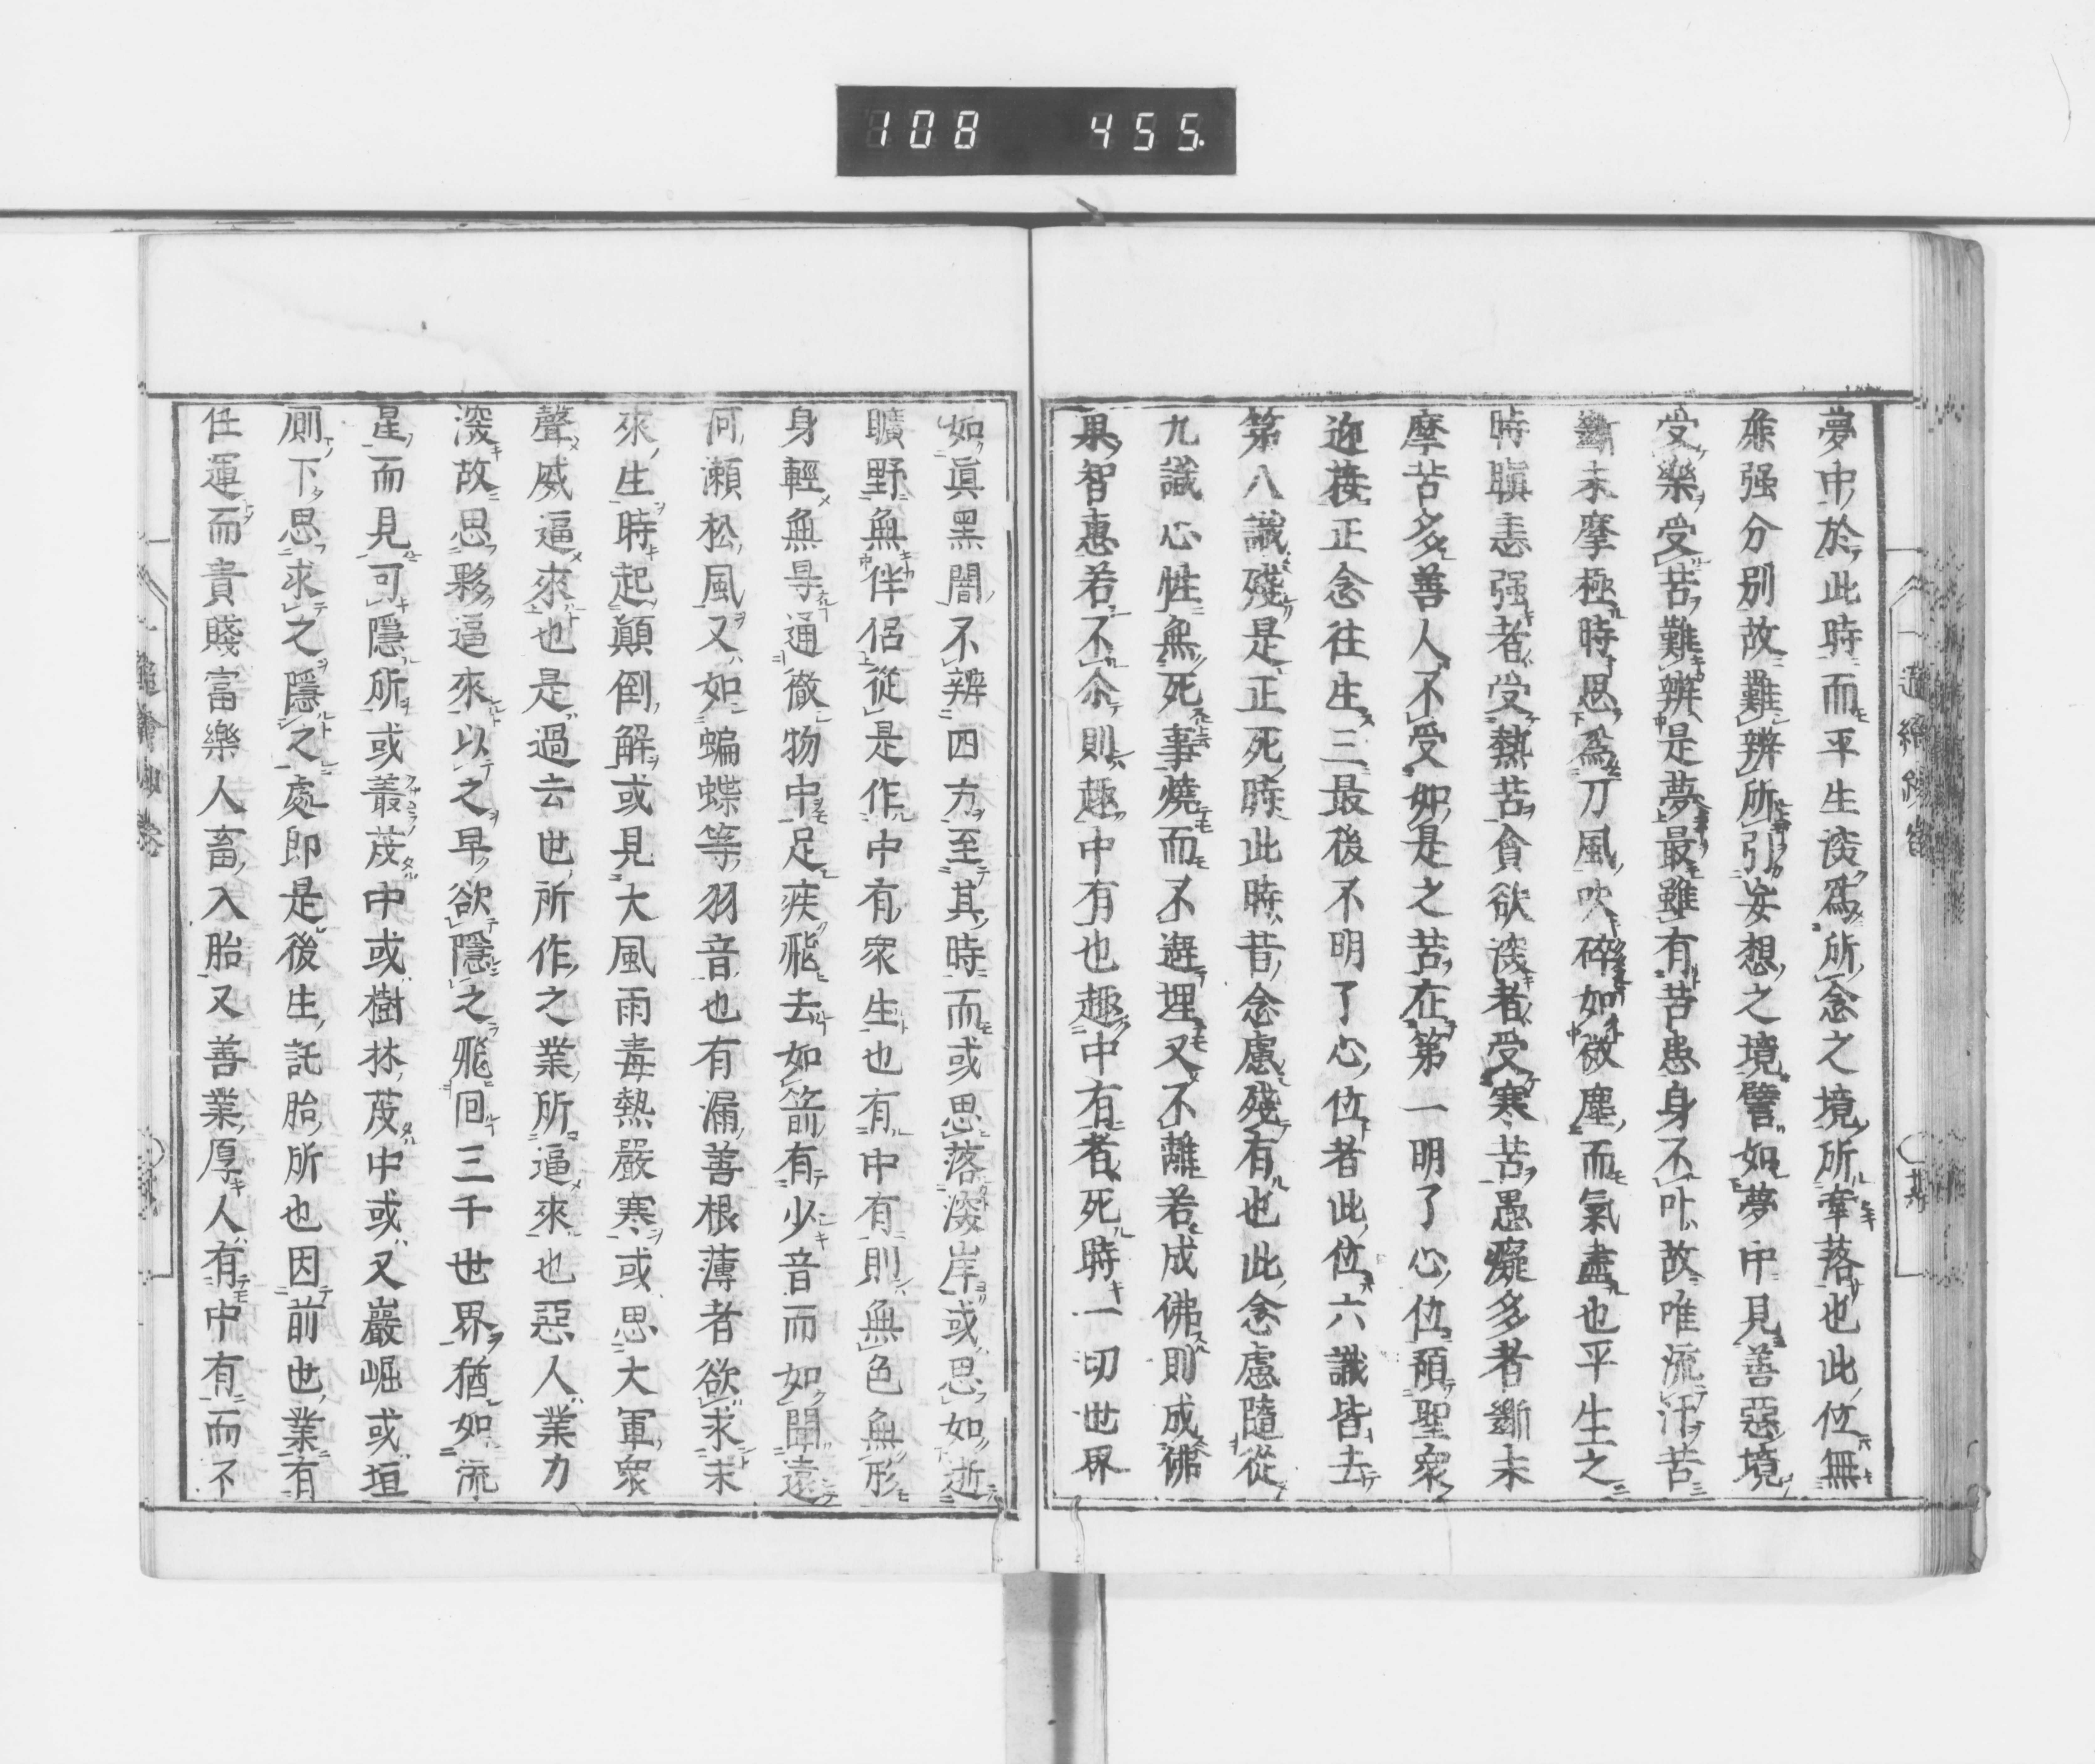 108 455.
夢中於此時而平生深爲所念之境所牽落也此位無
疾强分別故難辨所引妄想之境譬如夢中見善惡境
受樂受苦難辨是夢最雖有苦患身不叶故唯流汗苦
斷末摩極時思爲刀風吹碎如微塵而氣盡也平生之
時瞋恚强者受熱苦貪欲深者受寒苦愚癡多者斷末
摩苦多善人不受如是之苦在第一明了心位預聖衆
迎接正念往生三最後不明了心位者此位六識皆去
第八識殘是正死時此時昔念慮殘有也此念慮隨從
九識心性無死事燒而不遯埋又不離若成佛則成佛
果智惠若不尒則趣中有也趣中有者死時一切世界
如眞黑闇不辨四方至其時而或思落深岸或思如逝
曠野無伴侶從是作中有衆生也有中有則無色無形
身輕無㝵通徹物中足疾飛去如箭有少音而如聞遠
河瀬松風又如蝙蝶等羽音也有漏善根薄者欲求未
來生時起顛倒解或見大風雨毒熱嚴寒或思大軍衆
聲威逼來也是過去世所作之業所逼來也惡人業力
深故思夥逼來以之早欲隱之飛回三千世界猶如流
星而見可隱所或叢茂中或樹林茂中或又巖崛或垣
廁下思求之隱之處即是後生託胎所也因前世業有
任運而貴賤富樂人畜入胎又善業厚人有中有而不